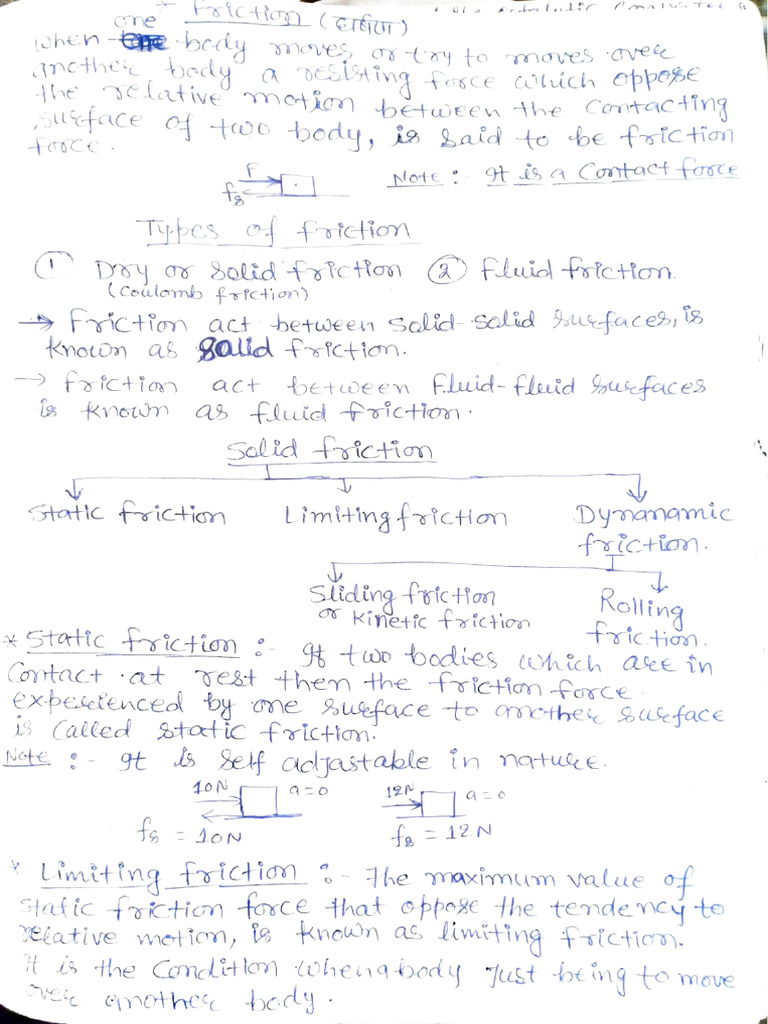 * Friction (घर्षण)
one
when body moves or try to moves over
another body a resisting force which oppose
the relative motion between the contacting
surface of two body, is said to be friction
force.
F
fs
Note :- It is a Contact force
Types of friction
① Dry or Solid friction ② fluid friction.
(Coulomb friction)
→ Friction act between solid-solid surfaces, is
known as solid friction.
→ friction act between fluid-fluid surfaces
is known as fluid friction.
Solid friction
Static friction Limiting friction Dynanamic
friction.
Sliding friction
or Kinetic friction
Rolling
friction.
* Static friction :- If two bodies which are in
Contact at rest then the friction force
experienced by one surface to another surface
is called static friction.
Note :- It is self adjastable in nature.
10N a=0 12N a=0
fs = 10N fs = 12N
* Limiting friction :- The maximum value of
static friction force that oppose the tendency to
relative motion, is known as limiting friction.
It is the condition when a body just being to move
over another body.